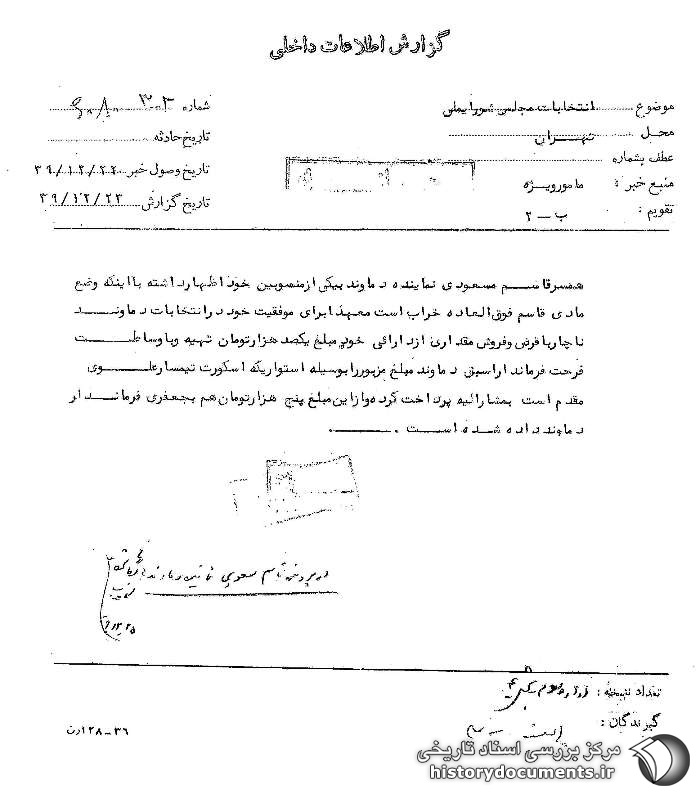 گزارش اطلاعات داخلی
موضوع انتخابات مجلس شورایملی
شماره ۳۰۳
محل تهران
تاریخ حادثه
عطف بشماره
تاریخ وصول خبر ۳۹/۱۲/۲۲
منبع خبر : مامورویژه
تاریخ گزارش ۳۹/۱۲/۲۳
تقویم : ب – ۲
همسرقاسم مسعودی نماینده دماوند بیکی ازمنسوبین خود اظهارداشته بااینکه وضع
مادی قاسم فوق‌العاده خراب است معهذا برای موفقیت خود درانتخابات دماوند
ناچاربا قرض وفروش مقداری ازدارائی خود مبلغ یکصد هزارتومان تهیه وباوساطت
فرحت فرماندارسبق دماوند مبلغ مزبوررا بوسیله استواریکه اسکورت تیمسارعلوی
مقدم است بمشارالیه پرداخت کرده وازاین مبلغ پنج هزارتومان هم بجعفری فرماندار
دماوند داده شده است .
تعداد نسخه :
گیرندگان :
۳۶ – ۱۲۸ رن
مرکز بررسی اسناد تاریخی
historydocuments.ir